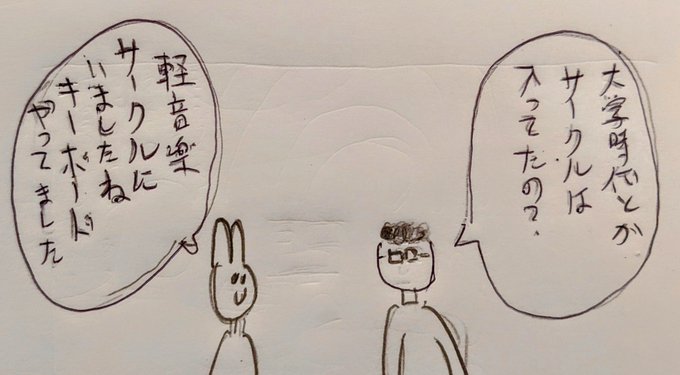 大学時代とか
サークルは
入ってたの？
軽音楽
サークルに
いましたね
キーボード
やってました